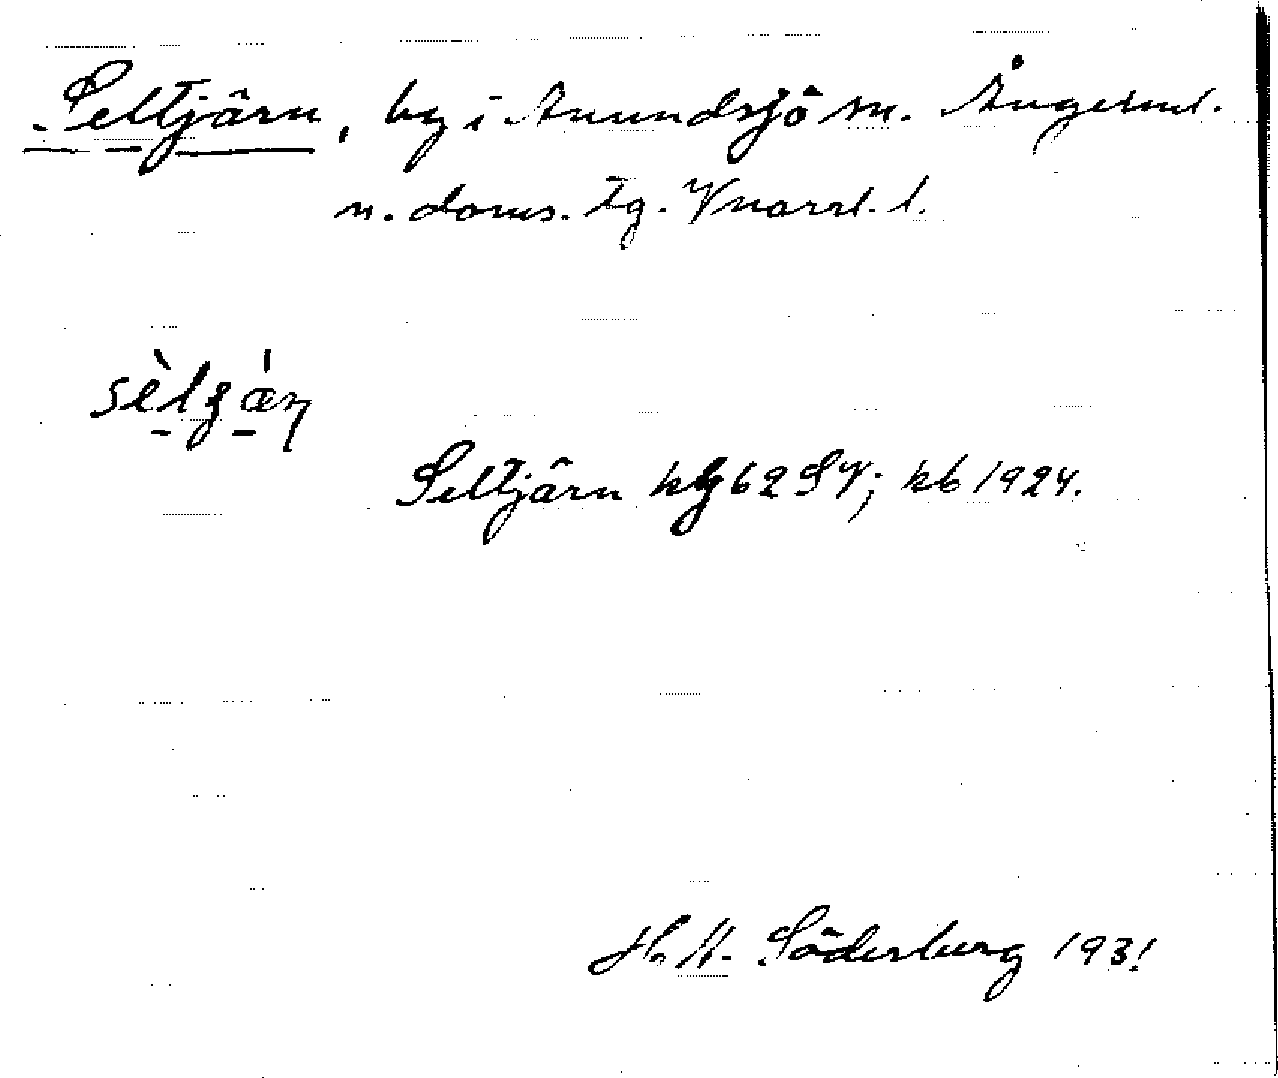 Seltjärn, by i Anundsjö sn. Ångerml.
n. doms. tg. Vnorrl. l.
Seltjärn kg 62 SV; kb 1924.
H. A. Söderberg 1931